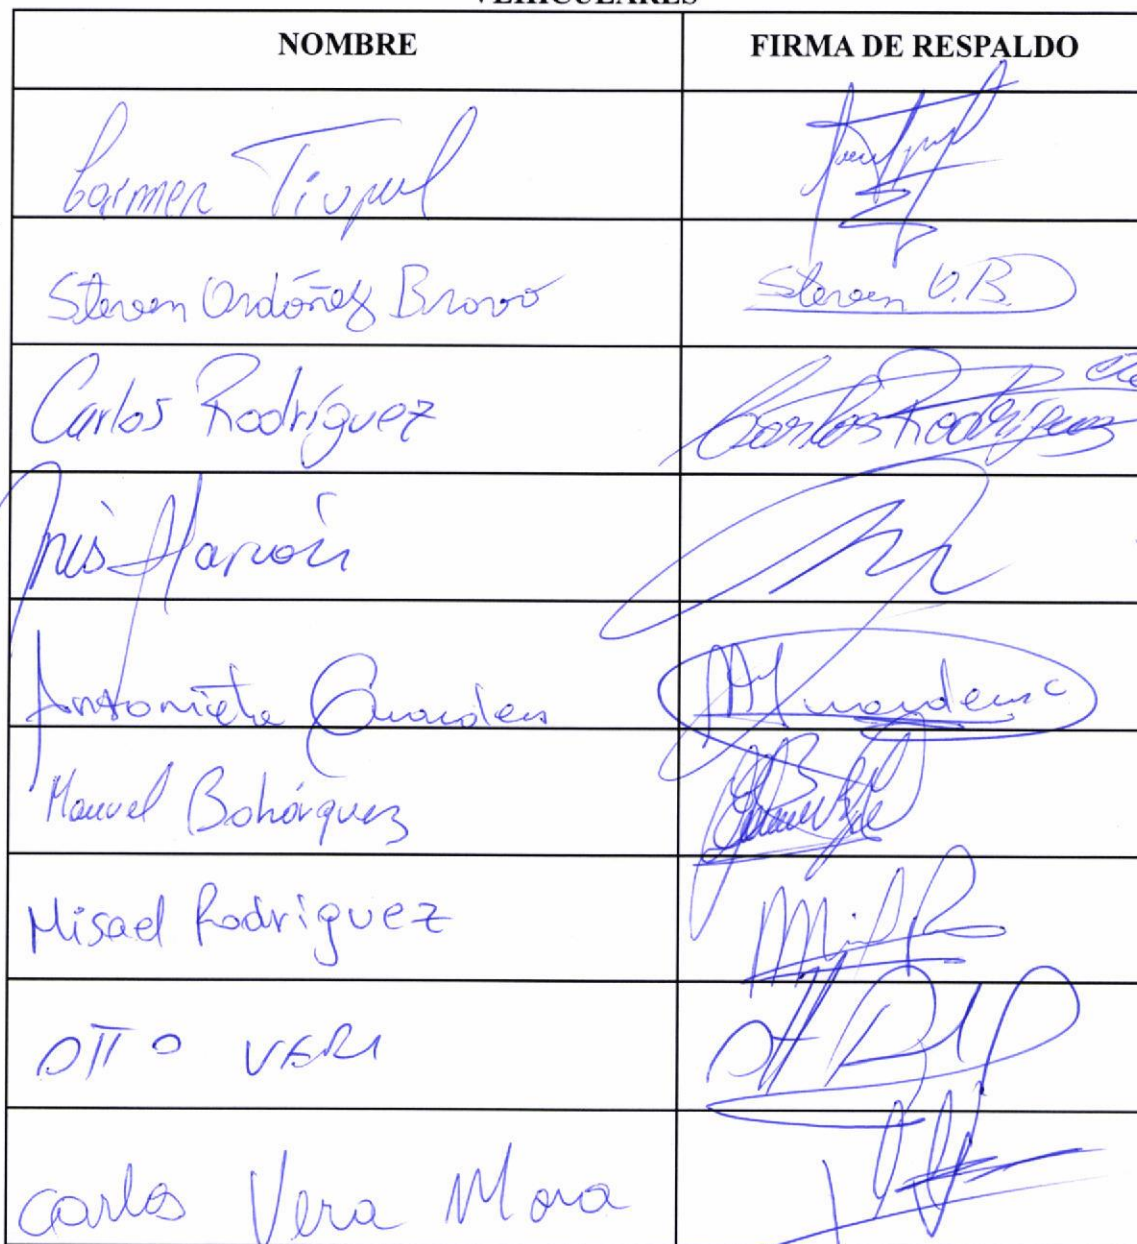 VEHICULARES
NOMBRE FIRMA DE RESPALDO
Carmen Tiupul
Steven Ordóñez Bravo Steven O.B.
Carlos Rodríguez Carlos Rodríguez
Inés
Antonieta
Manuel Bohórquez
Misael Rodriguez
OTTO VERA
Carlos Vera Mora